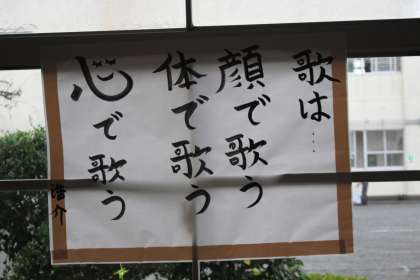 歌は…
顔で歌う
体で歌う
心で歌う
浩介